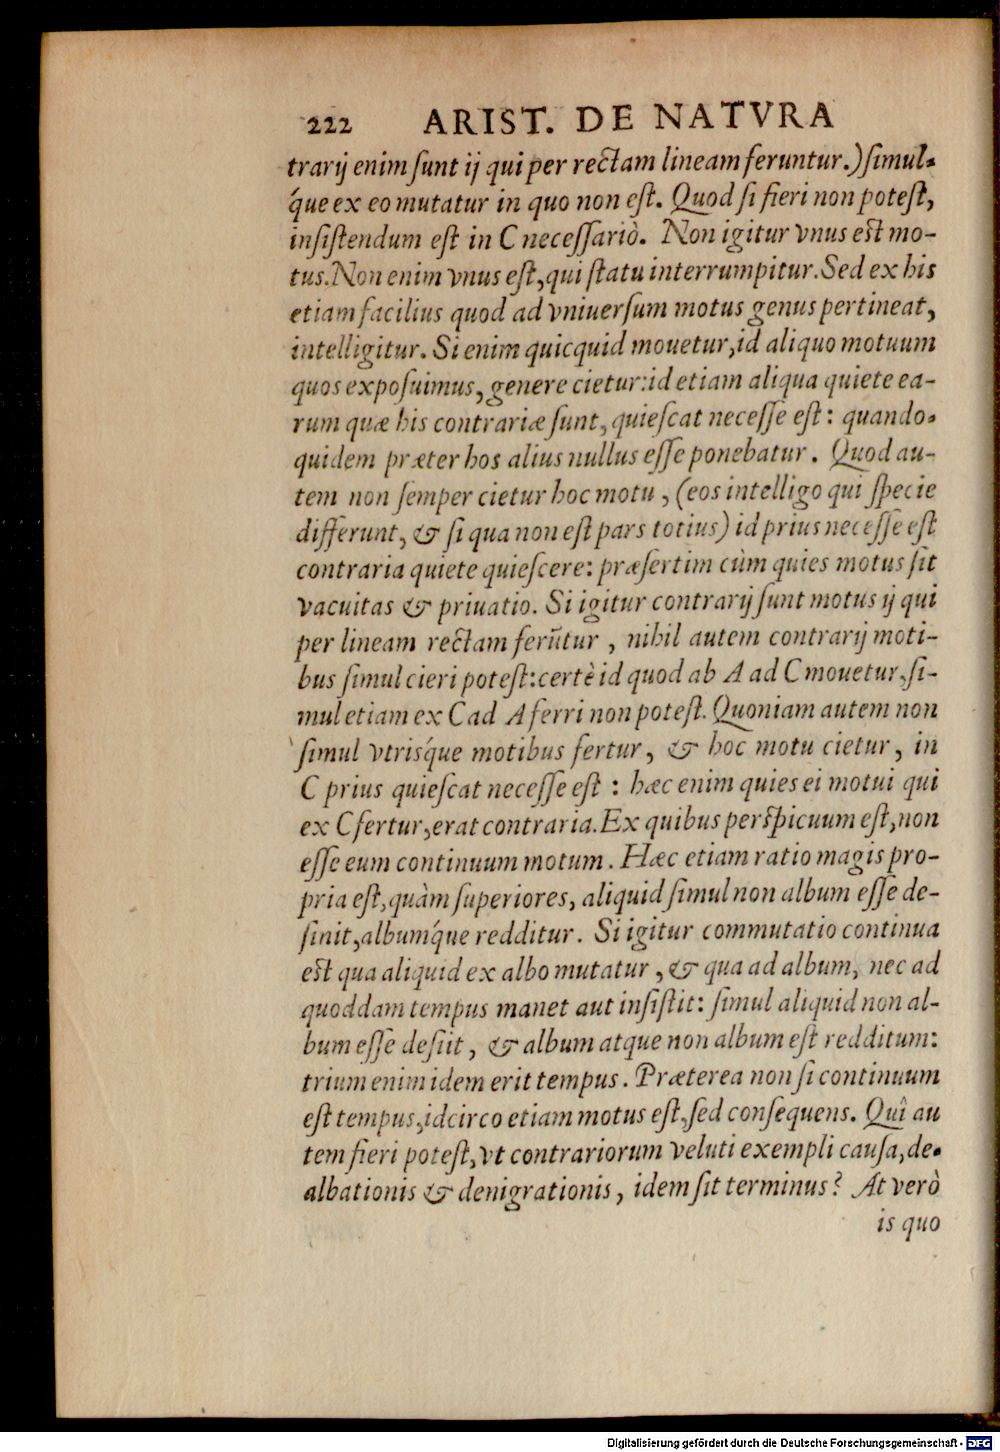 222 ARIST. DE NATVRA
trarij enim sunt ij qui per rectam lineam feruntur.) simul-
q́ue ex eo mutatur in quo non est. Quod si fieri non potest,
insistendum est in C necessariò. Non igitur vnus est mo-
tus. Non enim vnus est, qui statu interrumpitur. Sed ex his
etiam facilius quod ad vniuersum motus genus pertineat,
intelligitur. Si enim quicquid mouetur, id aliquo motuum
quos exposuimus, genere cietur: id etiam aliqua quiete ea-
rum quæ his contrariæ sunt, quiescat necesse est: quando-
quidem præter hos alius nullus esse ponebatur. Quod au-
tem non semper cietur hoc motu, (eos intelligo qui specie
differunt, & si qua non est pars totius) id prius necesse est
contraria quiete quiescere: præsertim cùm quies motus sit
vacuitas & priuatio. Si igitur contrarij sunt motus ij qui
per lineam rectam ferūtur, nihil autem contrarij moti-
bus simul cieri potest: certè id quod ab A ad C mouetur, si-
mul etiam ex C ad A ferri non potest. Quoniam autem non
simul vtrisq́ue motibus fertur, & hoc motu cietur, in
C prius quiescat necesse est: hæc enim quies ei motui qui
ex C fertur, erat contraria. Ex quibus perspicuum est, non
esse eum continuum motum. Hæc etiam ratio magis pro-
pria est, quàm superiores, aliquid simul non album esse de-
sinit, albumq́ue redditur. Si igitur commutatio continua
est qua aliquid ex albo mutatur, & qua ad album, nec ad
quoddam tempus manet aut insistit: simul aliquid non al-
bum esse desiit, & album atque non album est redditum:
trium enim idem erit tempus. Præterea non si continuum
est tempus, idcirco etiam motus est, sed consequens. Quî au
tem fieri potest, vt contrariorum veluti exempli causa, de-
albationis & denigrationis, idem sit terminus? At verò
is quo
Digitalisierung gefördert durch die Deutsche Forschungsgemeinschaft - DFG